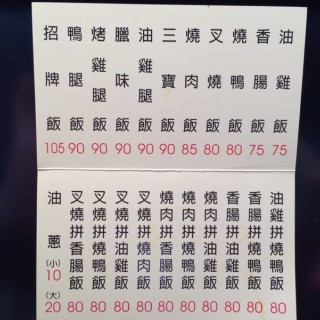 油雞飯 75
香腸飯 75
燒鴨飯 80
叉燒飯 80
燒肉飯 85
三寶飯 90
油雞腿飯 90
臘味飯 90
烤雞腿飯 90
鴨腿飯 90
招牌飯 105
油雞拼燒鴨飯 80
香腸拼燒鴨飯 80
香腸拼油雞飯 80
燒肉拼油雞飯 80
燒肉拼燒鴨飯 80
燒肉拼香腸飯 80
叉燒拼燒肉飯 80
叉燒拼油雞飯 80
叉燒拼燒鴨飯 80
叉燒拼香腸飯 80
油蔥 (小)10 (大)20